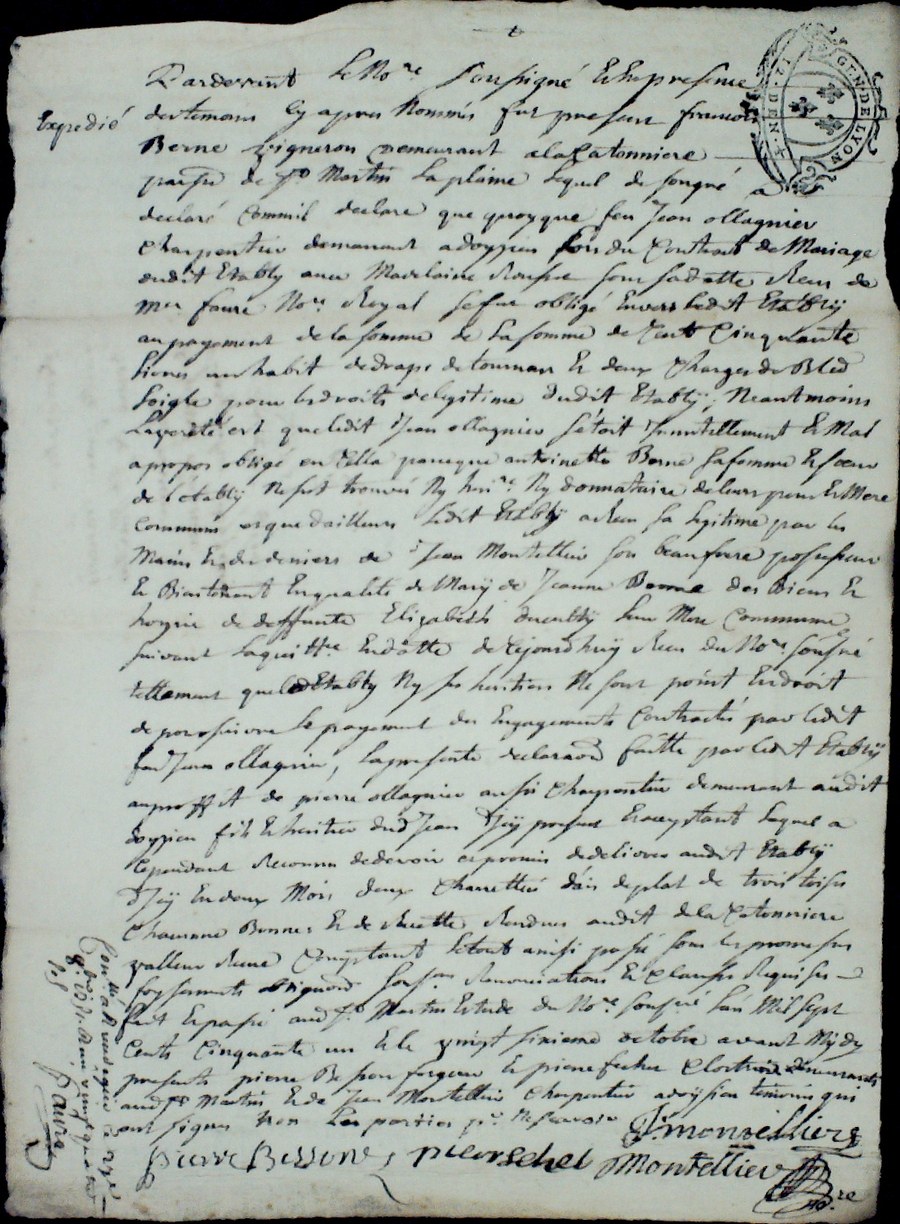 Pardevant le No.re soussigné Et En presence
des temoins Cy apres Nommés fut present francois
Expedié
GEN. DE LYON
Berne vigneron demeurant a la Catonniere
parsse de St Martin la plaine lequel de son gré a
declaré Comm'il declare que quoyque feu Jean ollagnier
Charpentier demeurant a doyzieu lors du Contrat de Mariage
dudit Etably avec Madelaine sous sa datte Receu de
me faure No.re Royal se fut obligé Envers ledit Etably
au payement de la somme de la somme de Cent Cinquante
livres un habit de drap de tournan Et deux Charges de Bled
Seigle pour les droits de legitime dudit Etably, Neantmoins
La verité est que ledit Jean ollagnier s'étoit Innutillement Et Mal
apropos obligé en Cella parceque antoinette Berne sa femme Et soeur
de l'etably Ne s'est trouvée Ny heri.re Ny donnataire de leurs pere Et Mere
communs et que d'ailleurs ledit Etably a Receu sa legitime par les
Mains Et des deniers de Jean Montellier son beau frere possesseur
Et Bientenant En qualité de Mary de Jeanne Berne des Biens Et
hoyrie de deffunte Elizabeth leur Mere Commune
suivant la quitt.ce En datte de Cejourd'huy Receu du No.re soussigné
tellement que led Etably Ny ses heritiers Ne sont point En droit
de poursuivre le payement des Engagements Contractés par ledit
feu Jean ollagnier, la presente declara.on faitte par ledit Etably
au proffit de pierre ollagnier aussi Charpentier demeurant audit
doyzieu fils Et heritier dud Jean Icy present Et acceptant lequel a
Cependant Reconnu de devoir et promis de delivrer audit Etably
d'Icy En deux Mois deux Charettées d'ais de plat de trois toises
Chacunne Bonnes Et de Recette Rendues audit de la Catonniere
valleur Reçue Comptant le tout ainsi passé sous les promesses
soysements obligaons Renonciations Et Clauses Requises
fait Et passé aud St Martin Etude du No.re soussigné l'an Mil sept
Cents Cinquante un Et le vingt sixieme octobre avant Midy
presents pierre Besson forgeur Et pierre Cloutier demeurants
aud St Martin Et de Jean Montellier Charpentier a doyzieu temoins qui
ont signes Non Les parties p.r Ne scavoir
J. montelliers
pierre Bessone pierschel Montellier
No.re
Con.llé a Rivedegier
faure